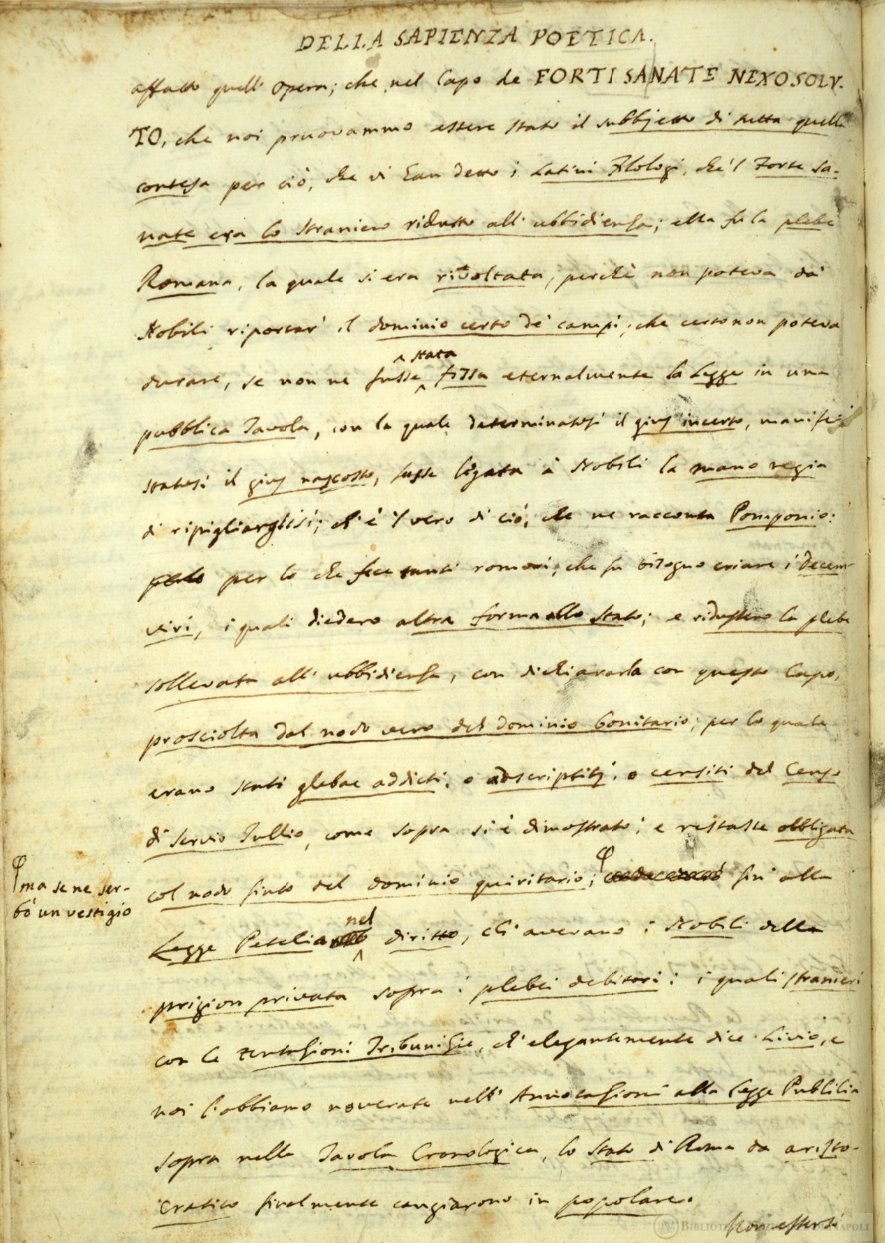 DELLA SAPIENZA POETICA.
affatto quell' Opera; che nel Capo de FORTI SANATE NEXO SOLU-
TO, che noi pruovammo essere stato il subbjetto di tutta quella
contesa per ciò, che vi han detto i Latini Filologi, che 'l Forte Sa-
nate era lo straniero ridutto all' ubbidienza; ella fu la plebe
Romana, la quale si era rivoltata, perchè non poteva da'
Nobili riportar' il dominio certo de' campi; che certo non poteva
durare, se non ne fusse stata fissa eternalmente la Legge in una
pubblica Tavola, con la quale determinatosi il gius incerto, manife-
statosi il gius nascosto, fusse ligata a' Nobili la mano regia
di ripigliarglisi; ch'è 'l vero di ciò, che ne racconta Pomponio:
per lo che fece tanti romori, che fu bisogno criare i decem-
viri, i quali diedero altra forma allo Stato; e ridussero la plebe
sollevata all' ubbidienza, con dichiararla con questo Capo,
prosciolta dal nodo vero del dominio bonitario; per lo quale
erano stati glebae addicti, o adscriptitj, o censiti del Censo
di Servio Tullio, come sopra si è dimostrato; e restasse obbligata
col nodo finto del dominio quiritario; fin' alla
ma se ne ser-
bò un vestigio
Legge Petelia nel diritto, ch' avevano i Nobili della
prigion privata sopra i plebei debitori: i quali stranieri
con le tentazioni Tribunizie, ch' elegantemente dice Livio, e
noi l'abbiamo noverate nell' Annotazioni alla Legge Publilia
sopra nella Tavola Cronologica, lo Stato di Roma da aristo-
cratico finalmente cangiarono in popolare.